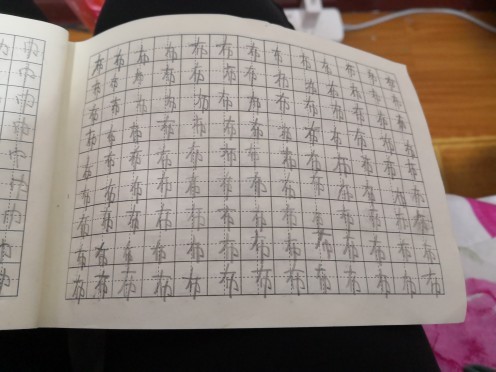 布布布布布布布布布布布布布
布布布布布布布布布布布布布
布布布布布布布布布布布布布
布布布布布布布布布布布布布
布布布布布布布布布布布布布
布布布布布布布布布布布布布
布布布布布布布布布布布布布
布布布布布布布布布布布布布
布布布布布布布布布布布布布